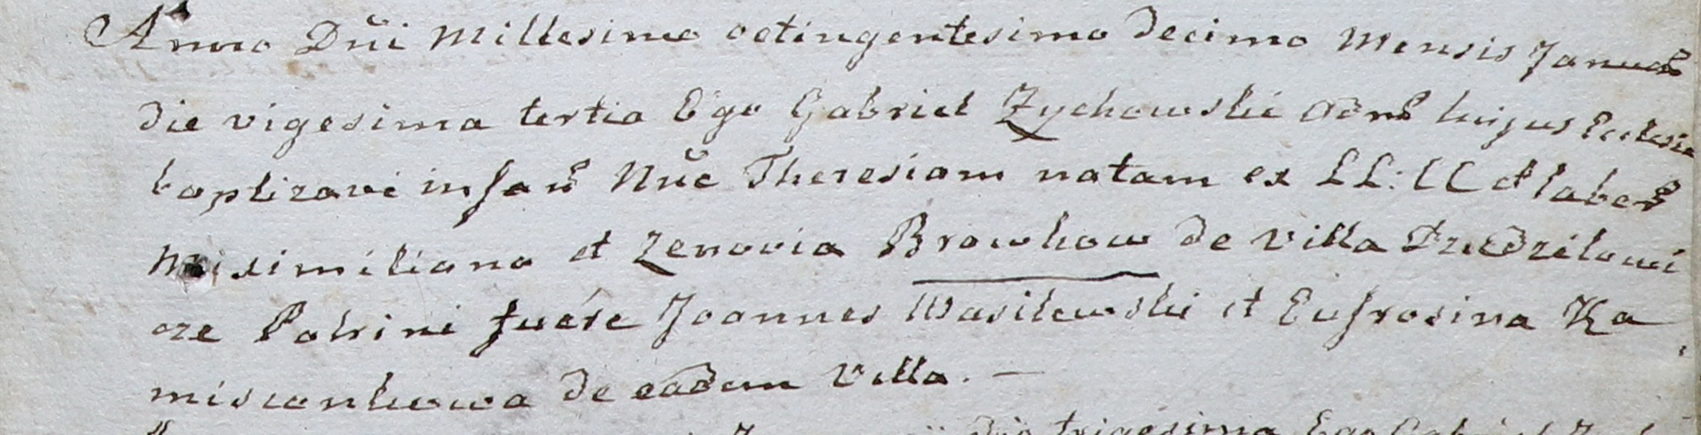 Anno Dñi Millesimo octingentesimo decimo Mensis Januar
die vigesima tertia Ego Gabriel Zychowski Admr hujus Ecclesiæ
baptizavi infan Nñe Theresiam natam ex LL: CC et labor
Maximiliano et Zenovia Browkow de Villa Dziedzilowi
cze Patrini fuére Joannes Wasilewski et Eufrosina Ka
misconkowa de eadem Villa. —
die trigesima Ego